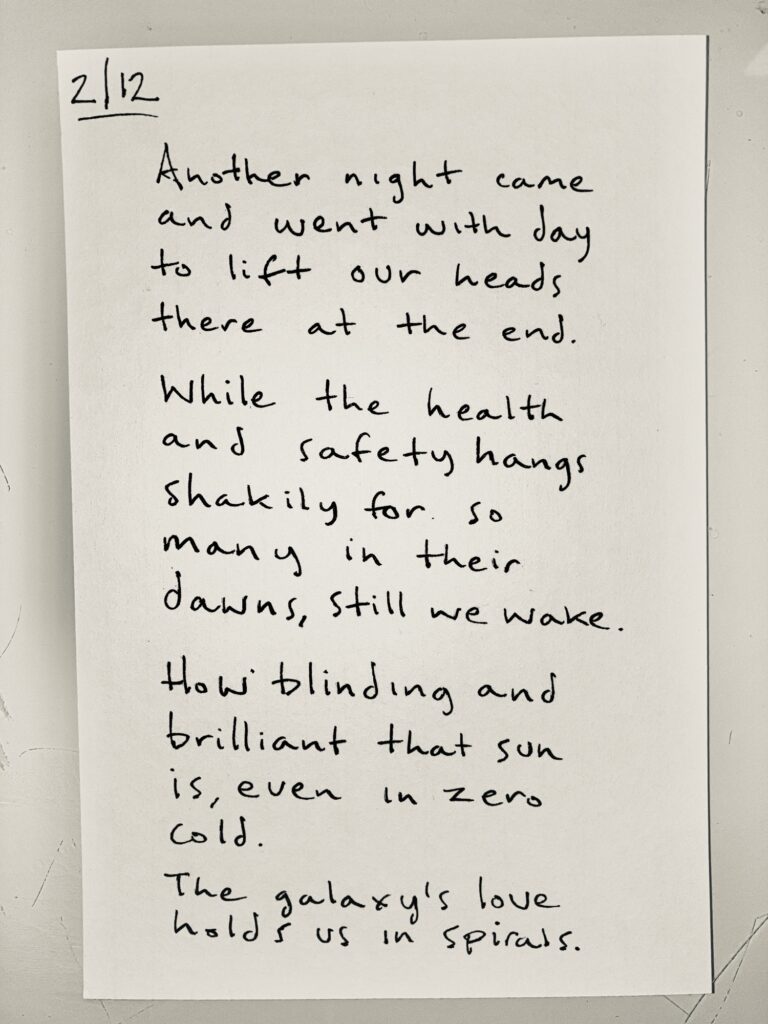 2/12
Another night came
and went with day
to lift our heads
there at the end.
While the health
and safety hangs
shakily for so
many in their
dawns, still we wake.
How blinding and
brilliant that sun
is, even in zero
cold.
The galaxy's love
holds us in spirals.